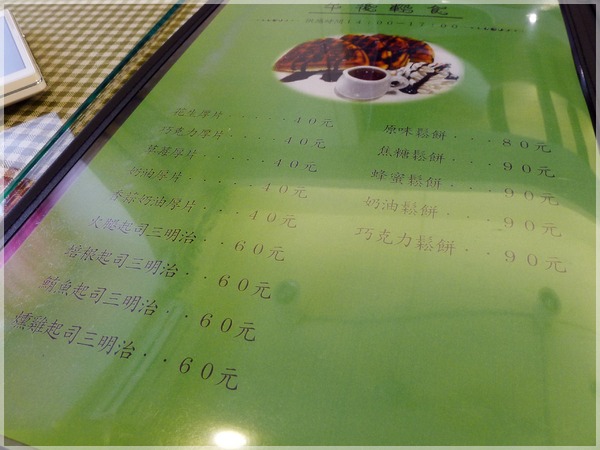 午後輕食
花生厚片‥‥‥40元
巧克力厚片‥‥40元
草莓厚片‥‥‥40元
奶油厚片‥‥‥40元
香蒜奶油厚片‥40元
火腿起司三明治‥60元
培根起司三明治‥60元
鮪魚起司三明治‥60元
燻雞起司三明治‥60元
原味鬆餅‥‥80元
焦糖鬆餅‥‥90元
蜂蜜鬆餅‥‥90元
奶油鬆餅‥‥90元
巧克力鬆餅‥‥90元